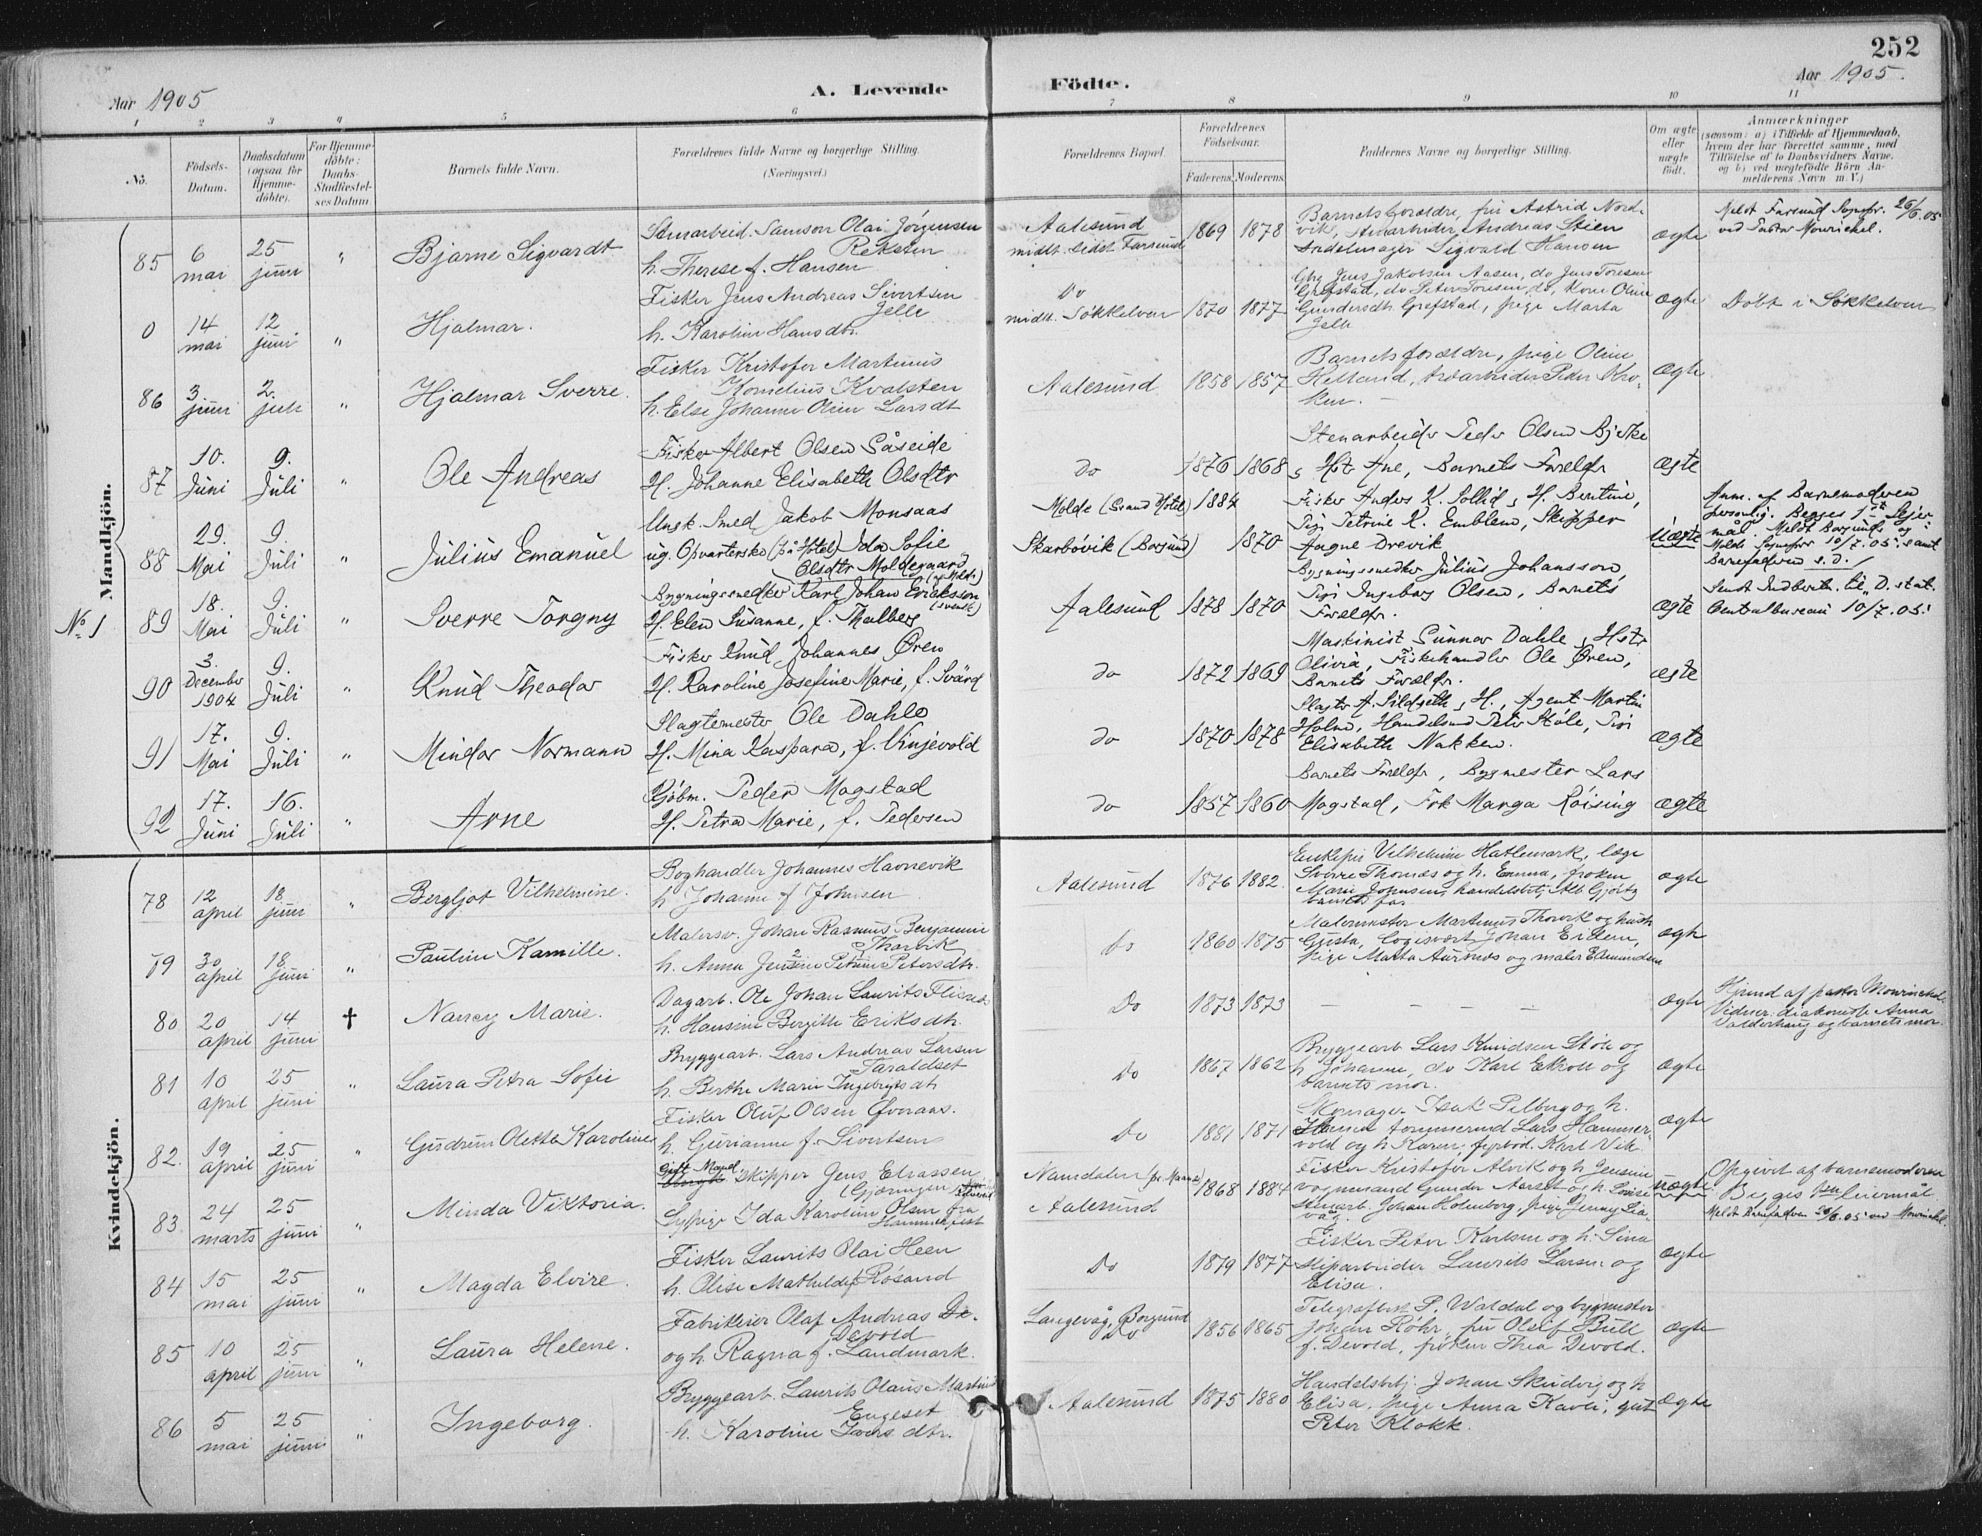 252
Aar 1905
A. Levende
Födte.
Aar 1905.
1 2 3 4 5 6 7 8 9 10 11
No.
Födsels-Datum.
Daabsdatum (ogsaa for Hjemme-döbte).
For Hjemme-döbte: Daabs-Stadfæstel-ses Datum
Barnets fulde Navn.
Forældrenes fulde Navne og borgerlige Stilling.
(Næringsvei.)
Forældrenes Bopæl.
Forældrenes Födselsaar.
Faderens. Moderens.
Faddernes Navne og borgerlige Stilling.
Om ægte eller uægte födt.
Anmærkninger
(saasom: a) i Tilfælde af Hjemmedaab,
hvem der har forrettet samme, med
Tilföielse af to Daabsvidners Navne,
og b) ved uægtefödte Börn An-
melderens Navn m. V.)
Mandkjön.
85 6 mai 25 juni " Bjarne Sigvardt
Stenarbeid. Samson Olai Jörgensen
Reksten
h. Therese f. Hansen
Aalesund
midt. bidst. Farsund
1869 1878
Barnets forældre, fru Astrid Nord-
vik, stenarbeider Andreas Stien
Sigvald Hansen
ægte
Meldt Farsund Sognepr. 26/6.05
ved Pastor Mowinckel.
0 14 mai 12 juni " Hjalmar.
Fisker Jens Andreas Sivertsen
Jelle
h. Karoline Hansdtr.
Do
midt. Søkkelven
1870 1877
Gbr. Jens Jakobsen Aasen, do Jens Toresen
Grefstad, do Peter Toresen do, kone Oline
Gundersdt. Grefstad, pige Marta
Jelle
ægte
Döbt i Søkkelven
86 3 juni 2. juli " Hjalmar Sverre.
Fisker Kristofer Martinus
Kornelius Kvalsten
h. Else Johanne Oline Larsdt
Aalesund
1858 1857
Barnets forældre, pige Oline
Helland, Peder Kro-
ken. -
ægte
87 10. Juni 9. Juli " Ole Andreas
Fisker Albert Olsen Såseide
H. Johanne Elisabeth Olsdtr
Do
1876 1868
Stenarbeidr Peder Olsen Bjerke
, Hst Ane, Barnets Foreldr
ægte
88 29. Mai 9. Juli " Julius Emanuel
Ungk. Smed Jakob Monsaas
ug. Opvarterske (på Hotel) Ida Sofie
Olsdtr Moldegaard
(v. Molde)
Molde (Grand Hotel) 1884
Skarbövik (Borgund) 1870
Fisker Anders K. Sollid, H. Bertine,
Pigi Petrine K. Emblem, Skipper
Aagne Drevik
Uægte
Anm. af Barnemoderen
personlig. Begges 1ste Lejer
mål. Meldt Borgunds og
Molde Sognepr 10/7.05. samt
Barnefaderen s. D.
No 1
89 18. Mai 9. Juli " Sverre Torgny
Bygningssnedker Karl Johan Eriksson
(svensk)
H. Elen Susanne, f. Thalberg
Aalesund
1878 1870
Bygningssnedker Julius Johansson,
Pigi Ingeborg Olsen, Barnets
Forældr.
ægte
Sendt Indberetn. til D. stat.
Centralbureau 10/7.05.
90 3. December 1904 9. Juli " Knud Theodor
Fisker Knud Johannes Øren
H. Karoline Josefine Marie, f. Svärd
Do
1872 1869
Maskinist Gunnar Dahle, Hstr
Olivia, Fiskehandler Ole Øren,
Barnets Forældr.
ægte
91 17. Mai 9. Juli " Mindor Normann
Slagtemester Ole Dahle
H. Mina Kaspara, f. Vinjevold
Do
1870 1878
Slagter A. Sildseth, H., Agent Martin
Holm, Handelsmd Peter Støle, Pigi
Elisabeth Nakken.
ægte
92 17. Juni 16. Juli " Arne
Kjöbm. Peder Magstad
H. Petra Marie, f. Pedersen
Do
1857 1860
Barnets Foreldr, Bygmester Lars
Magstad, Frk Marga Røising
ægte
Kvindekjön.
78 12 april 18 juni " Bergljot Vilhelmine.
Boghandler Johannes Havnevik
h. Johanne f. Johnsen
Aalesund
1876 1882.
Enkefru Vilhelmine Hatlemark, læge
Sverre Thomas og h. Emma, frøken
Marie Johnsen, handelsbetj. Alb Gjørtz
barnets far.
ægte
79 30 april 18 juni " Pauline Kamille.
Malersv. Johan Rasmus Benjamin
Thorvik
h. Anna Jensine Petrine Petersdtr.
Do
1860 1875
Malermester Martinus Thorvik og hustr
Gusta, Logisvært Johan Eidem,
pige Marta Aursnes og maler Edmundsen
ægte
80 20 april 14 juni † Nancy Marie.
Dagarb. Ole Johan Laurits Flisnes
h. Hansine Bergitte Eriksdtr.
Do
1873 1873
— — —
ægte
Hjemd af pastor Mowinckel.
Vidner: diakonisse Anna
Valderhaug og barnets mor.
81 10 april 25 juni " Laura Petra Sofie
Bryggearb. Lars Andreas Larsen
Taraldset
h. Berthe Marie Ingebrigtsdt.
Do
1867 1862
Bryggearb Lars Knudsen Støle og
h. Johanne, do Karl Ekroll og
barnets mor.
ægte
82. 19 april 25 juni " Gudrun Olette Karoline
Fisker Oluf Olsen Overaas.
h. Gurianne f. Sivertsen
Do
1881 1871
Skomager Isak Pilberg og h.
Hanna, tømmermd Lars Hammer-
vold og h. Karen, fyrbød. Karl Vik.
ægte
83. 24 marts 25 juni " Minda Viktoria.
Gift Mand
Ungk Skipper Jens Eliassen
(Gjæringen)
Sypige Ida Karoline Olsen fra
Hammerfest
Namdalen
Aalesund
1868 1884
Fisker Kristofer Alvik og h Jensine
vognmand Gunder Aarset og h. Lovise
Stenarb. Johan Holmborg, pige Jenny Lia-
våg.
uægte
Opgivet af barnemoderen
Begges 1ste leiermål
Meldt Barnefaderen 26/6.05 ved Mowinckel.
84 15 mai 25 juni " Magda Elvire.
Fisker Laurits Olai Heen
h. Olise Mathilde f Røsand
Do
1879 1877
Fisker Peter Karlsen og h. Sina
Sliparbeider Laurits Larsen og
Elisa.
ægte
85 10 april 25 juni " Laura Helene.
Fabrikeier Olaf Andreas De-
Devold
og h. Ragna f. Landmark.
Langevåg, Borgund
Do
1856 1865
Telegrafbest P. Waldal og bygmester
Johan Røhr, fru Olsif Bull
f. Devold, frøken Thea Devold.
ægte
86 5 mai 25 juni " Ingeborg.
Bryggearb. Laurits Olaus Martinus
Engeset
h. Karoline Iversdtr.
Aalesund
1875 1880
Handelsbetj. Johan Skudvig og h
Elisa, pige Anna Kavli, gut
Peter Klokk.
ægte